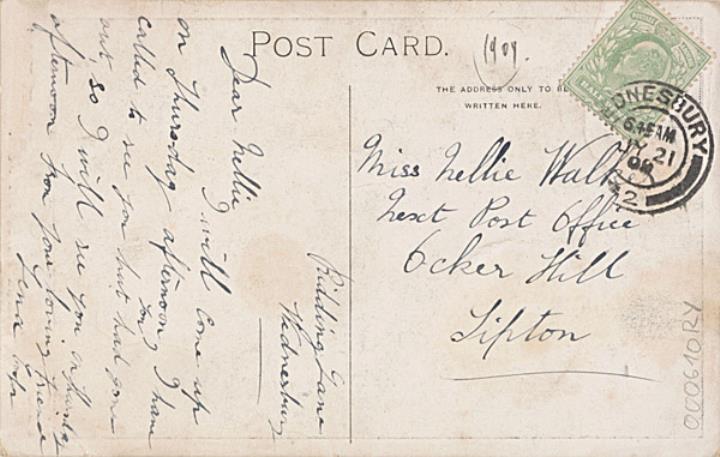 POST CARD.
1909.
THE ADDRESS ONLY TO BE
WRITTEN HERE.
DNESBURY
6.45AM
JY 21
09
2
Miss Nellie Walke
Next Post Office
Ocker Hill
Tipton
Ridding Lane
Wednesbury
Dear Nellie
I will come up
on Thursday afternoon, I have
called to see you but had gone
you
out, so I will see you on Thursday
afternoon from your loving friend
Lena
000610RY